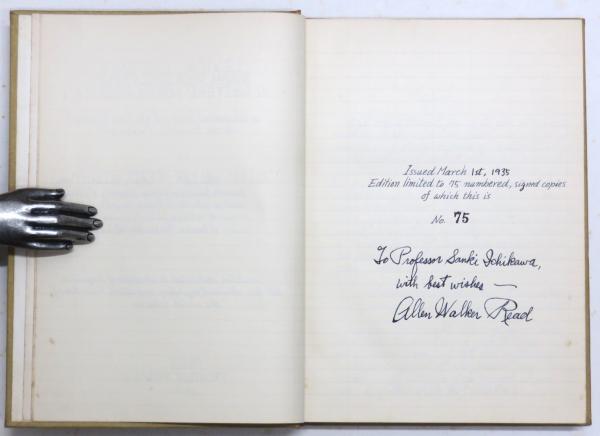 Issued March 1st, 1935
Edition limited to 75 numbered, signed copies
of which this is
No. 75
To Professor Sanki Ichikawa,
with best wishes —
Allen Walker Read